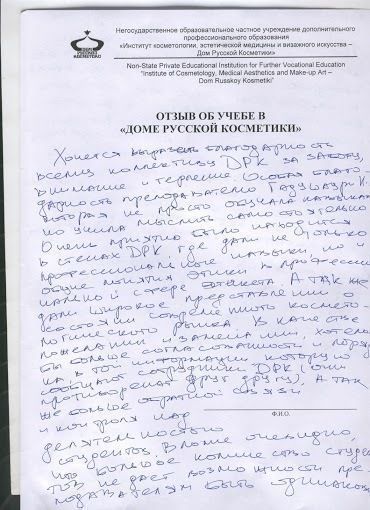 Негосударственное образовательное частное учреждение дополнительного
профессионального образования
«Институт косметологии, эстетической медицины и визажного искусства –
Дом Русской Косметики»
Non-State Private Educational Institution for Further Vocational Education
"Institute of Cosmetology, Medical Aesthetics and Make-up Art –
Dom Russkoy Kosmetiki"
ОТЗЫВ ОБ УЧЕБЕ В
«ДОМЕ РУССКОЙ КОСМЕТИКИ»
Хочется выразить благодарность
всему коллективу ДРК за заботу,
внимание и терпение. Особая благо-
дарность преподавателю
которая не просто обучала навыкам
но учила мыслить самостоятельно
Очень приятно было находится
в стенах ДРК, где дали не только
профессиональные навыки но и
общие понятия этики в професси-
ональной сфере этикета. А так же
дали широкое представление о
состоянии современного космето-
логического рынка. В качестве
пожелания и замечания, хотелось
бы больше согласованности и поряд-
ка в той информации которую
сообщают сотрудники ДРК (они
противоречат друг другу). А так
же больше обратной связи
и контроля над
Ф.И.О.
деятельностью
студентов. Вполне очевидно,
что большое количество студен-
тов не дает возможности пре-
подавателям быть одинаково